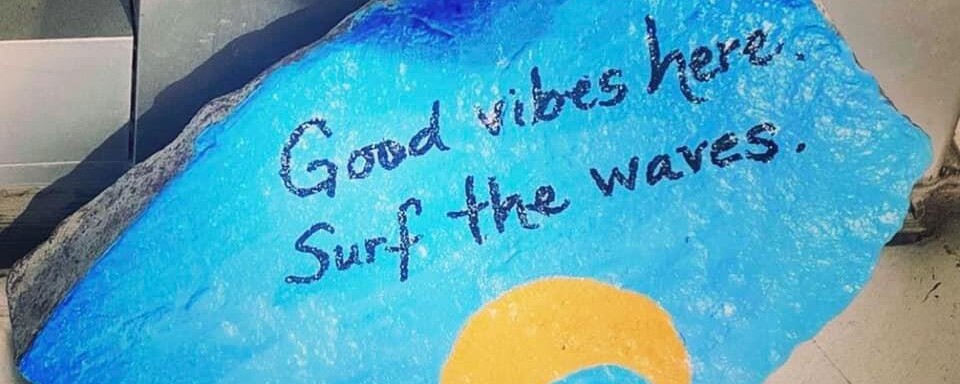 Good vibes here.
Surf the waves.